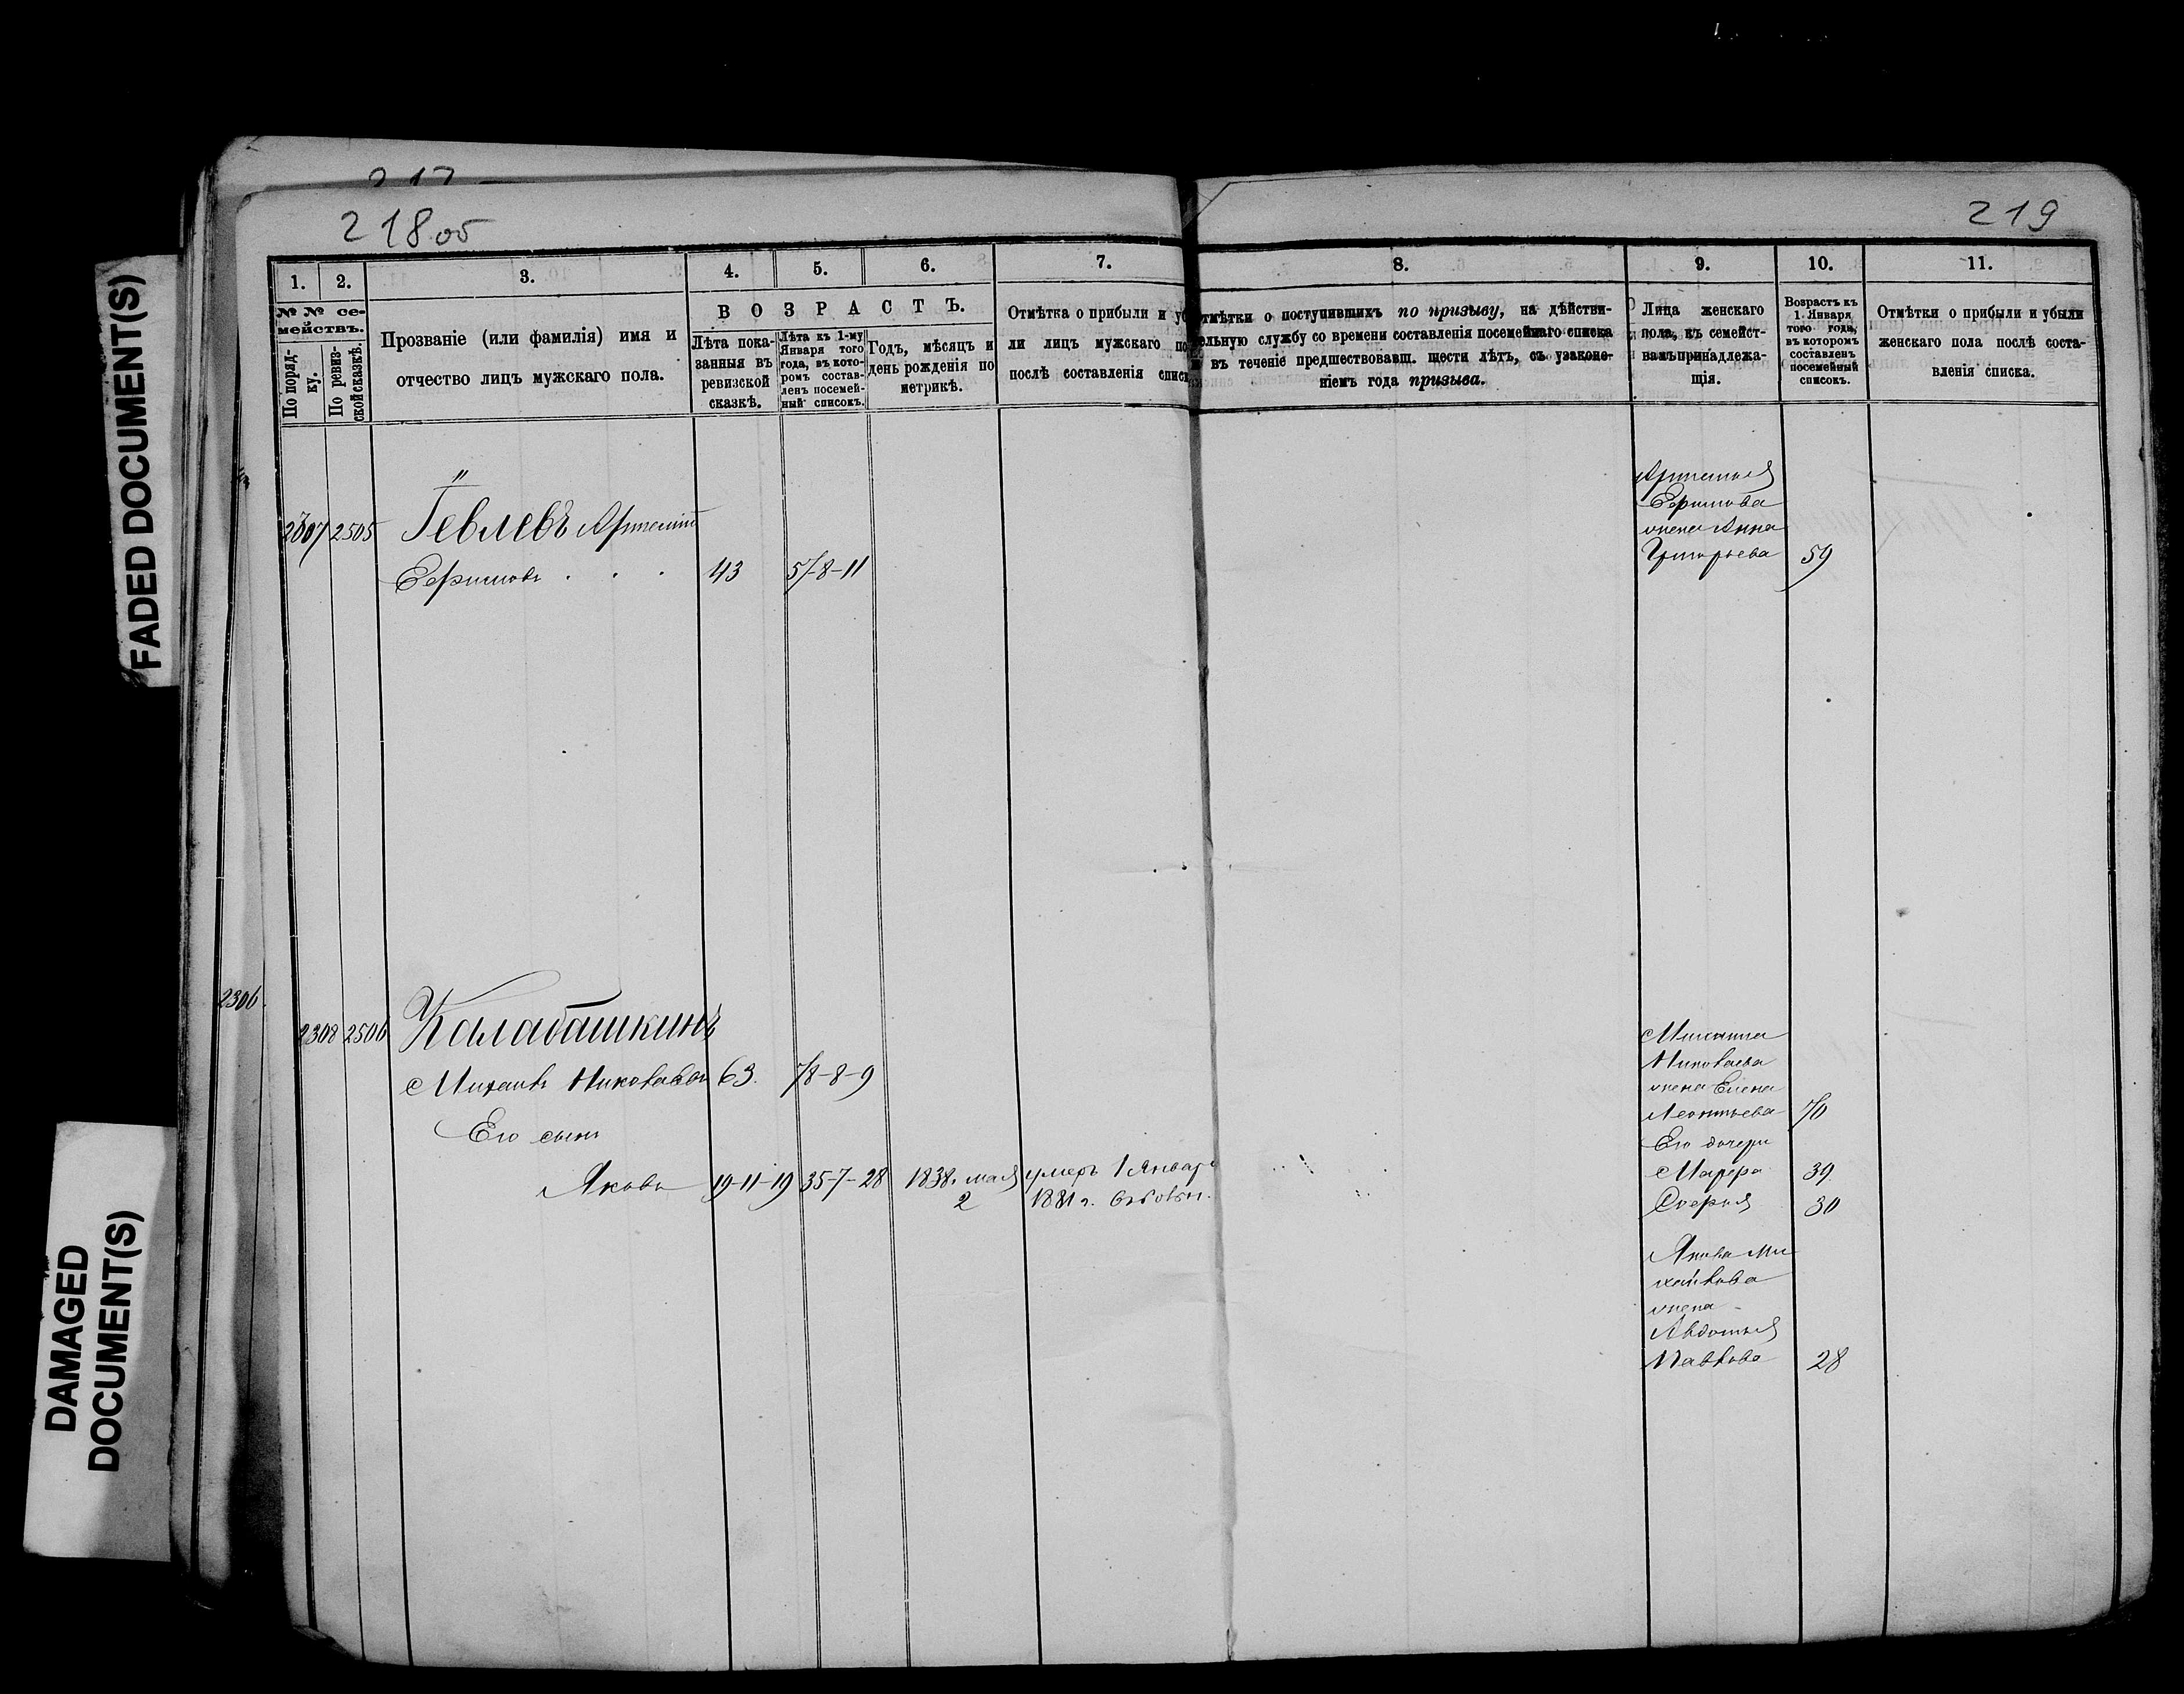 FADED DOCUMENT(S)
DAMAGED
DOCUMENT(S)
217
218 об
219
1.
2.
3.
4.
5.
6.
7.
8.
9.
10.
11.
№ № се-
мействъ.
По поряд-
ку.
По ревиз-
ской сказкѣ.
Прозваніе (или фамилія) имя и
отчество лицъ мужскаго пола.
ВОЗРАСТЪ.
Лѣта пока-
занныя въ
ревизской
сказкѣ.
Лѣта къ 1-му
Января того
года, въ кото-
ромъ состав-
ленъ посемей-
ный списокъ.
Годъ, мѣсяцъ и
день рожденія по
метрикѣ.
Отмѣтка о прибыли и уб
ли лицъ мужскаго по
послѣ составленія списк
тмѣтки о поступившихъ по призыву, на дѣйстви-
ельную службу со времени составленія посемейнаго списка
въ теченіе предшествовавш. шести лѣтъ, съ узаконе-
ніемъ года призыва.
Лица женскаго
пола, къ семейст-
вамъ принадлежа-
щія.
Возрастъ къ
1 Января
того года,
въ которомъ
составленъ
посемейный
списокъ.
Отмѣтки о прибыли и убыли
женскаго пола послѣ соста-
вленія списка.
2307 2505 Гевлевъ Артемій
Ефимовъ . . . 43 57-8-11
Артемья
Ефимова
жена Анна
Григорьева 59
2306
2308 2506 Калабашкинъ
Михаилъ Николаевъ 63. 78-8-9
Его сынъ
Яковъ 19-11-19 35-7-28 1838 г. мая
2
умеръ 1 Январ
1881 г.
Михаила
Николаева
жена Елена
Леонтьева 70
Его дочери
Марфа 39.
Софья 30
Якова Ми
хайлова
жена
Авдотья
Павлова 28